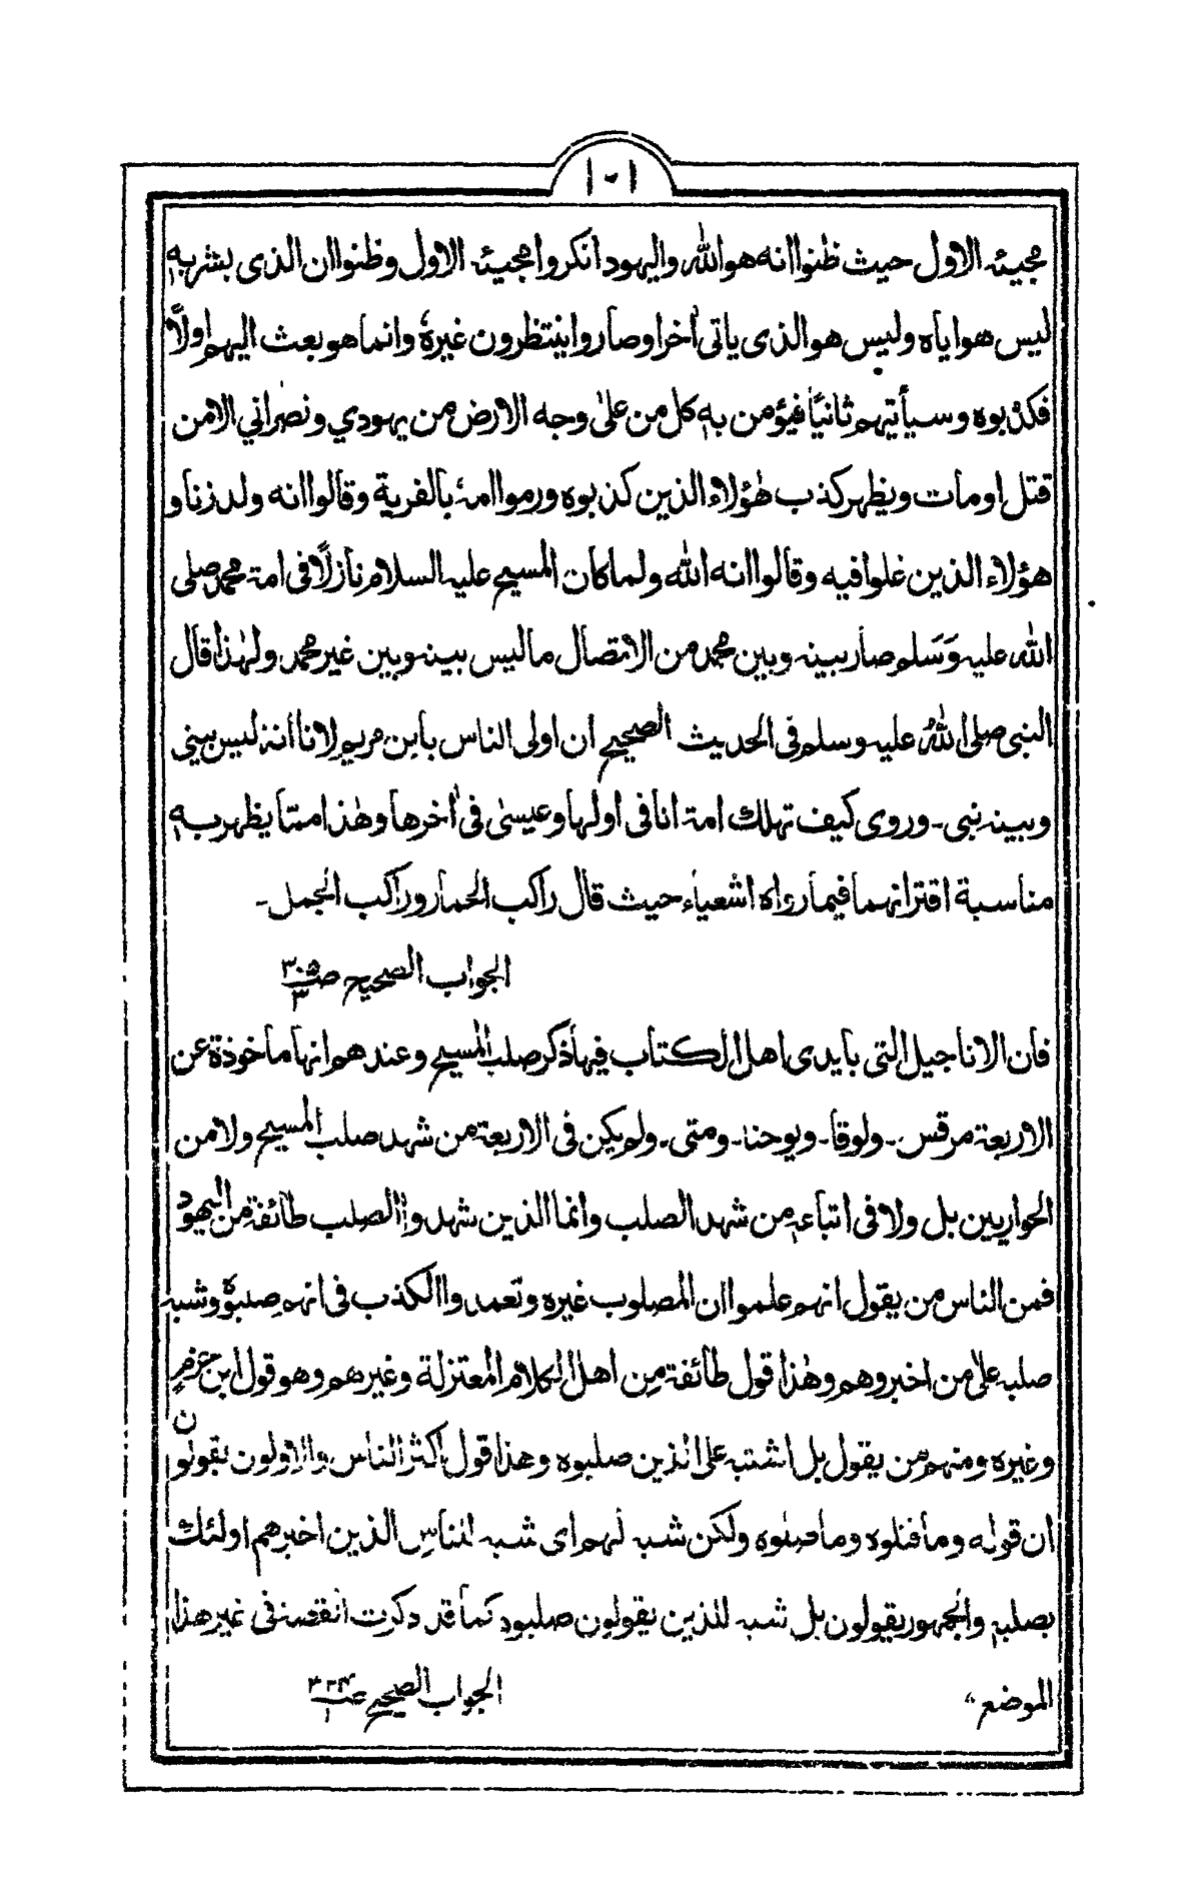 ١٠١
مجيئه الاول حيث ظنوا انه هو الله واليهود انكروا مجيئه الاول وظنوا ان الذى بشر به
ليس هو اياه وليس هو الذى ياتى اٰخرا وصاروا ينتظرون غيرهٗ وانما هو بعث اليهم اولًا
فكذبوه وسيأتيهم ثانيًا فيؤمن به كل من علىٰ وجه الارض من يهودي ونصراني الا من
قتل او مات ويظهر كذب هٰؤلاء الذين كذبوه ورموا امهٗ بالفرية وقالوا انه ولد زنا و
هؤلاء الذين غلوا فيه وقالوا انه الله ولما كان المسيح عليه السلام نازلًا فى امة محمد صلى
الله عليه وَسَلم صار بينه وبين محمد من الاتصال ما ليس بينه وبين غير محمد ولهٰذا قال
النبى صلى اللهُ عليه وسلم فى الحديث الصحيح ان اولى الناس بابن مريم لانا انه ليس بينى
وبينه نبى ـ وروى كيف تهلك امة انا فى اولها وعيسىٰ فى اٰخرها وهٰذا مما يظهر به
مناسبة اقترانهما فيما رواه اشعياء حيث قال راكب الحمار وراكب الجمل ـ
الجواب الصحيح صـ ٣٠٥/٣
فان الاناجيل التى بايدى اهل الكتاب فيها ذكر صلب المسيح وعندهم انها ماخوذة عن
الاربعة مرقس ـ ولوقا ـ ويوحنا ـ ومتى ـ ولم يكن فى الاربعة من شهد صلب المسيح ولا من
الحواريين بل ولا فى اتباعه من شهد الصلب وانما الذين شهدوا الصلب طائفة من اليهود
فمن الناس من يقول انهم علموا ان المصلوب غيره وتعمدوا الكذب فى انهم صلبوهٗ وشبه
صلبه علىٰ من اخبروهم وهٰذا قول طائفة مِن اهل الكلام المعتزلة وغيرهم وهو قول ابن حزم
وغيره ومنهم من يقول بل اشتبه على الذين صلبوه وهٰذا قول اكثر الناس والاولون يقولون
ان قوله وما قتلوه وما صلبوه ولكن شبه لهم اى شبه للناس الذين اخبرهم اولئك
بصلبه والجمهور يقولون بل شبه للذين يقولون صلبوه كما قد ذكرت القصة فى غير هذا
الموضع " الجواب الصحيح